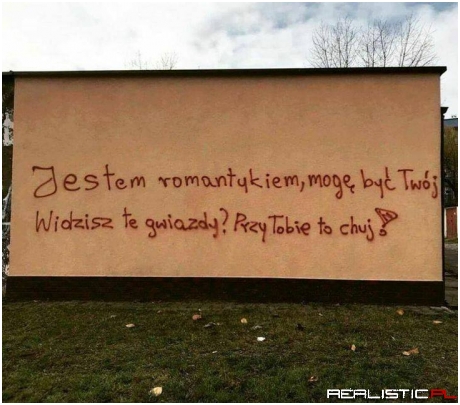 Jestem romantykiem, mogę być Twój
Widzisz te gwiazdy? Przy Tobie to chuj!
REALISTIC.PL